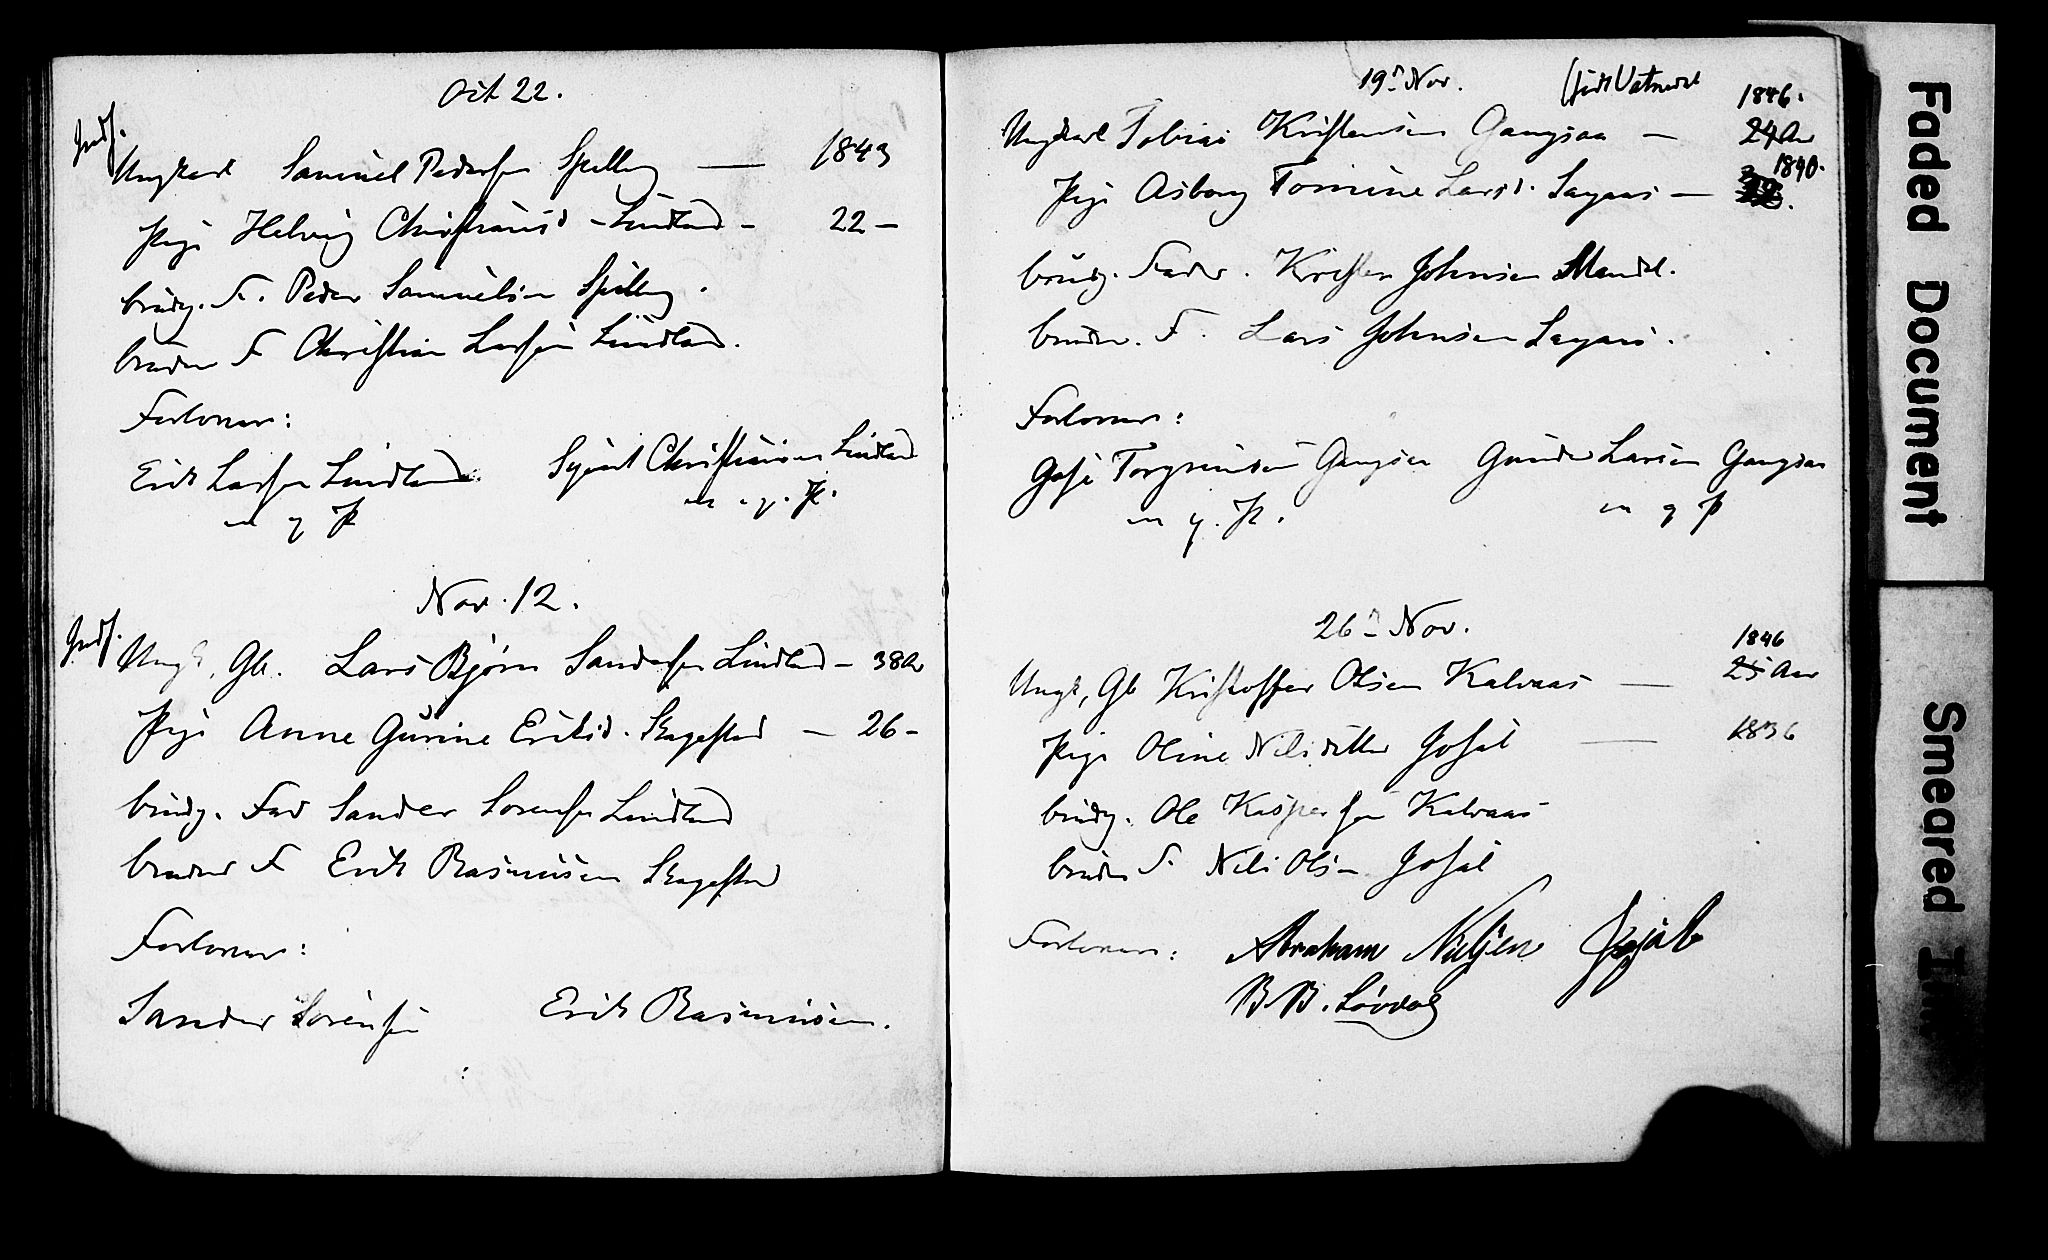 Oct 22.
Indf.
Ungkarl Samuel Pedersen Spilling — 1843
Pige Helvig Christiansd – Lindland – 22 –
brudg. F. Peder Samuelsen Spilling.
bruden F Christian Larsen Lindland.
Forlovere:
Erik Larsen Lindland. Sigurd Christiansen Lindland
m. p. P. m. p. P.
Nov. 12.
Indf.
Ungk, Gb. Lars Bjørn Sandersen Lindland – 38 Ar
Pige Anne Gurine Eriksd. Skagestad – 26 –
brudg. Fad Sander Sorensen Lindland
brudens F Erik Rasmusen Skagestad
Forlovere:
Sander Sorensen Erik Rasmusen.
19de Nov. (født Vatnedal
1846.
Ungkarl Tobias Kristensen Gangsaa — 24 Aar
1840.
Pige Asborg Tomine Larsd. —
brudg. Fader. Kristen Johnsen Mandal.
bruden. F. Lars Johnsen
Forlovere:
Torgrimsen Gangsaa Gunder Larsen Gangsaa
m. p. P. m p P
26de Nov.
1846
Ungk, Gb Kristoffer Olsen Kalvaas — 25 Aar
Pige Oline Nilsdatter Josal — 1836
brudg. Ole Kaspersen Kalvaas
bruden F. Nils Olsen Josal
Forlovere: Abraham Nilsen Josal
B. B. Løvdal
Faded Document
Smeared